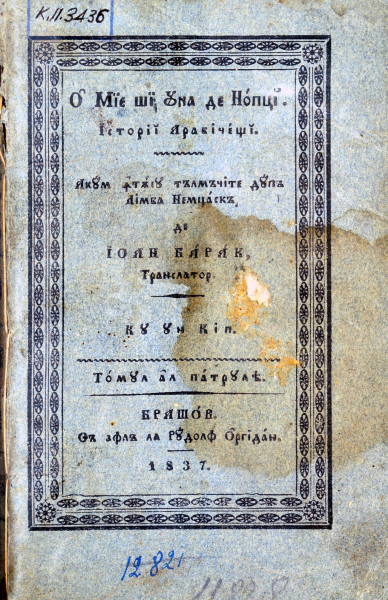 К.П.3436
О҆ Мїе шѝ ꙋна де Но́пцй.
Історїй Арабіче́щй.
Акꙋм ꙟтѫ́ю тълмъчіте дꙋпъ
Лімба Немцѣскъ,
де
ІОАН БА́РАК,
Транслатор.
Кꙋ ꙋн Кіп.
То́мꙋл а́л па́трꙋлѣ.
БРАШО́В.
Съ афлъ ла Рꙋ́долф Ѻргіда́н,
1837.
12 821